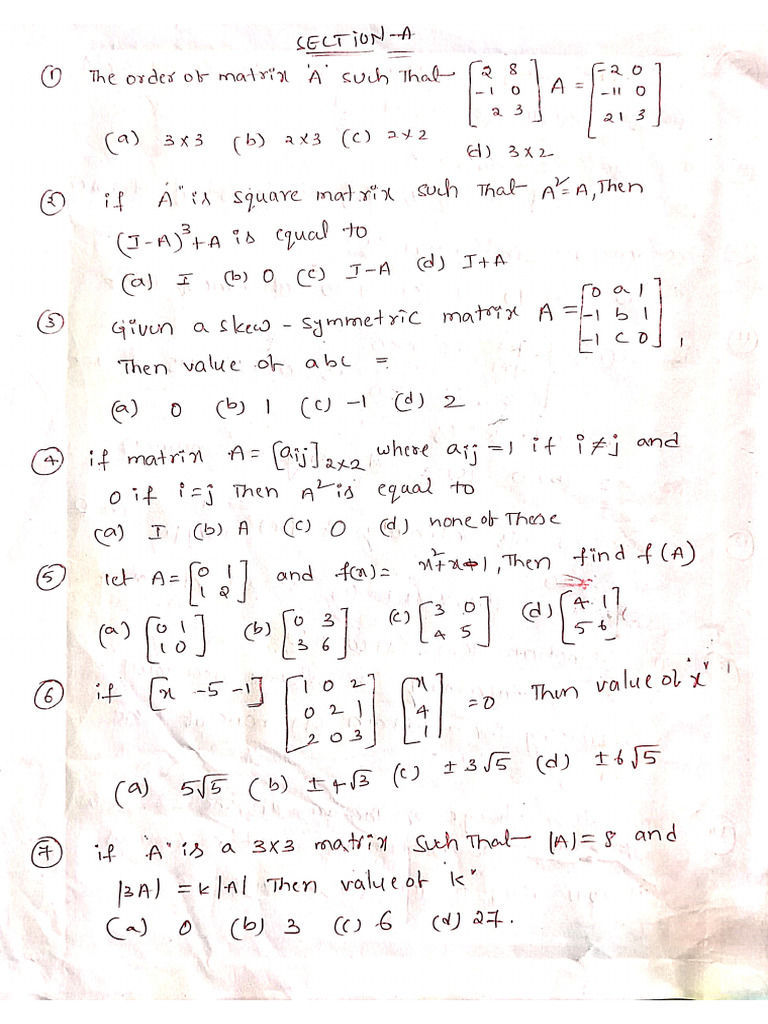 SECTION-A
① The order of matrix 'A' such that [2 8; -1 0; 2 3] A = [-2 0; -11 0; 21 3]
(a) 3×3 (b) 2×3 (c) 2×2 (d) 3×2
② if A" is square matrix such that A²=A, Then
(I-A)³+A is equal to
(a) I (b) 0 (c) I-A (d) I+A
③ Given a skew-symmetric matrix A = [0 a 1; -1 b 1; -1 c 0],
Then value of abc =
(a) 0 (b) 1 (c) -1 (d) 2
④ if matrix A = [aij]2×2, where aij=1 if i≠j and
0 if i=j Then A² is equal to
(a) I (b) A (c) 0 (d) none of These
⑤ let A = [0 1; 1 2] and f(x) = x²+x+1, Then find f(A)
(a) [0 1; 1 0] (b) [0 3; 3 6] (c) [3 0; 4 5] (d) [4 1; 5 6]
⑥ if [x -5 -1] [1 0 2; 0 2 1; 2 0 3] [x; 4; 1] =0 Then value of "x"
(a) 5√5 (b) ±4√3 (c) ±3√5 (d) ±6√5
⑦ if 'A" is a 3×3 matrix such that |A|=8 and
|3A| = k|A| Then value of k"
(a) 0 (b) 3 (c) 6 (d) 27.